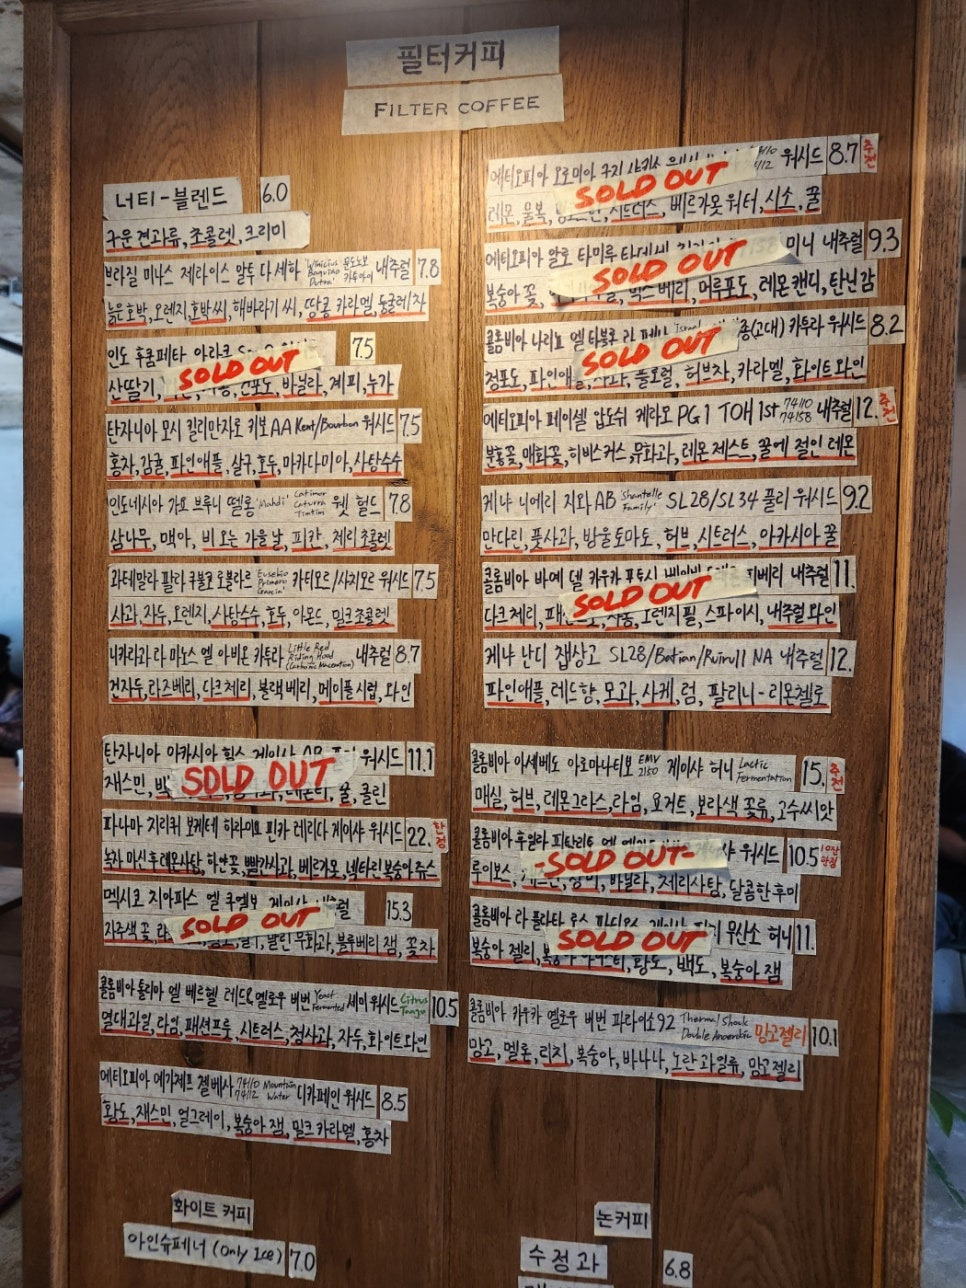 필터커피
FILTER COFFEE
너티-블렌드 6.0
구운견과류, 초콜렛, 크리미
브라질 미나스 제라이스 알투 다 세하 내추럴 7.8
늙은호박, 오렌지, 호박씨, 해바라기씨, 땅콩 카라멜,
인도 후쿰페타 아라쿠 7.5
SOLD OUT
산딸기, 건포도, 바닐라, 계피, 누가
탄자니아 모시 킬리만자로 키보 AA Kent/Bourbon 워시드 7.5
홍차, 감귤, 파인애플, 살구, 호두, 마카다미아, 사탕수수
인도네시아 가요 브루니 뗄롱 'Mahdi' Catimor Caturra Timtim 웻 헐드 7.8
삼나무, 맥아, 비 오는 가을 날, 피칸, 체리초콜렛
과테말라 팔라 쿠불코 오볼라르 Eusebio Primero Garcia' 카티모르/사치모르 워시드 7.5
사과, 자두, 오렌지, 사탕수수, 호두, 아몬드, 밀크초콜렛
니카라과 라 미노스 엘 아비온 카투라 Little Red Riding Hood (Carbonic Maceration) 내추럴 8.7
건자두, 라즈베리, 다크체리, 블랙베리, 메이플시럽, 와인
탄자니아 아카시아 힐스 게이샤 AB 워시드 11.1
SOLD OUT
재스민, 꿀, 클린
파나마 치리퀴 보케테 하라미요 핀카 레리다 게이샤 워시드 22. 한정
녹차 마신후 레몬사탕, 하얀꽃, 빨간사과, 베르가못, 넥타린복숭아쥬스
멕시코 치아파스 엘 쿠엘보 게이샤 내추럴 15.3
SOLD OUT
자주색 꽃, 말린 무화과, 블루베리 잼, 꽃차
콜롬비아 톨리마 엘 베르헬 레드&옐로우 버번 Yeast Fermented 세미 워시드 Citrus Tango 10.5
열대과일, 라임, 패션프루, 시트러스, 청사과, 자두, 화이트와인
에티오피아 예가체프 첼베사 74110 74112 Mountain Water 디카페인 워시드 8.5
황도, 재스민, 얼그레이, 복숭아 잼, 밀크카라멜, 홍차
에티오피아 오로미아 구지 워시드 8.7 추천
SOLD OUT
레몬, 율복, 시트러스, 베르가못 워터, 시소, 꿀
에티오피아 알로 타미루 내추럴 9.3
SOLD OUT
복숭아 꽃, 믹스베리, 머루포도, 레몬캔디, 탄닌감
콜롬비아 나리뇨 엘 타블론 카투라 워시드 8.2
SOLD OUT
청포도, 파인애플, 사과, 플로럴, 허브차, 카라멜, 화이트와인
에티오피아 페이셀 압도쉬 케라모 PG1 TOH 1st 74110 74158 내추럴 12. 추천
분홍꽃, 매화꽃, 히비스커스, 무화과, 레몬 제스트, 꿀에 절인 레몬
케냐 니에리 지와 AB 'Shantelle Family' SL28/SL34 풀리 워시드 9.2
만다린, 풋사과, 방울토마토, 허브, 시트러스, 아카시아 꿀
콜롬비아 바예 델 카우카 포토시 피베리 내추럴 11.
SOLD OUT
다크체리, 자몽, 오렌지필, 스파이시, 내추럴 와인
케냐 난디 챕상고 SL28/Batian/Ruiru11 NA 내추럴 12.
파인애플, 레드향, 모과, 사케, 럼, 팔리니-리몬첼로
콜롬비아 아세베도 아로마나티보 EMV 2150 게이샤 허니 Lactic Fermentation 15. 추천
매실, 허브, 레몬그라스, 라임, 요거트, 보라색 꽃류, 고수씨앗
콜롬비아 후일라 피탈리토 워시드 10.5
-SOLD OUT-
루이보스, 바닐라, 체리사탕, 달콤한후미
콜롬비아 라 플라타 무산소 허니 11.
SOLD OUT
복숭아 젤리, 황도, 백도, 복숭아 잼
콜롬비아 카우카 옐로우 버번 파라이소92 Thermal Shock Double Anaerobic 망고젤리 10.1
망고, 멜론, 리치, 복숭아, 바나나, 노란과일류, 망고젤리
화이트 커피
아인슈페너 (Only Ice) 7.0
논커피
수정과 6.8